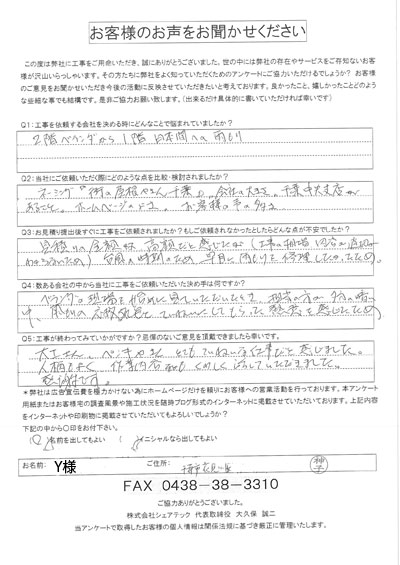 お客様のお声をお聞かせください
この度は弊社に工事をご用命いただき、誠にありがとうございました。世の中には弊社の存在やサービスをご存知ないお客
様が沢山いらっしゃいます。その方たちに弊社をよく知っていただくためのアンケートにご協力いただけるでしょうか？ お客様
のご意見をお聞かせいただき今後の活動に反映させていただきたいと考えております。良かったこと、嬉しかったことどのよう
な些細な事でも結構です。是非ご協力お願い致します。（出来るだけ具体的に書いていただければ幸いです）
Q1:工事を依頼する会社を決める時にどんなことで悩まれていましたか？
2階ベランダから1階日本間への雨もり
Q2:当社にご依頼いただく際にどのような点を比較・検討されましたか？
ネーミング「街の屋根やさん千葉」。会社の大きさ。千葉中央支店が
あること。ホームページのよさ。お客様の声の多さ
Q3:お見積り提出後すぐに工事をご依頼されましたか？もしご依頼されなかったとしたらどんな点が不安でしたか？
見積りの金額は、高額だと感じたが
台風の時期のため、早目に雨もりを修理したかったため。
Q4:数ある会社の中から当社に工事をご依頼いただいた決め手は何ですか？
ベランダの現場を始めに見ていただいたとき、担当の方が
ていねいにして
Q5:工事が終わってみていかがですか？忌憚のないご意見を頂戴できましたら幸いです。
大工さん、ペンキやさん とてもていねいな仕事だと感じました。
人柄もよく、作業内容
＊弊社は広告宣伝費を極力かけない為にホームページだけを頼りにお客様への営業活動を行っております。本アンケート
用紙またはお客様宅の調査風景や施工状況を随時ブログ形式のインターネットに掲載させていただいております。上記内容
をインターネットや印刷物に掲載させていただいてもよろしいでしょうか？
下記の中から〇印をお付下さい。
（〇）名前を出してもよい （ ）イニシャルなら出してもよい
お名前: Y様 ご住所:
FAX 0438-38-3310
ご協力ありがとうございました。
株式会社シェアテック 代表取締役 大久保 誠二
当アンケートで取得したお客様の個人情報は関係法規に基づき厳正に管理いたします。